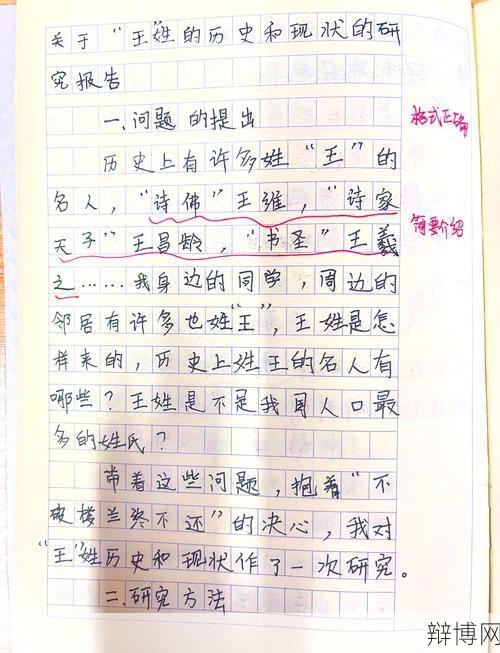 关于“王”姓的历史和现状的研
究报告
一、问题的提出
历史上有许多姓“王”的
名人，“诗佛”王维，“诗家
天子”王昌龄，“书圣”王羲
之……我身边的同学，周边的
邻居有许多也姓“王”，王姓是怎
样来的，历史上姓王的名人有
哪些？王姓是不是我国人口最
多的姓氏？
带着这些问题，抱着“不
破楼兰终不还”的决心，我对
“王”姓历史和现状作了一次研究。
二、研究方法
格式正确
简要介绍
辩博网